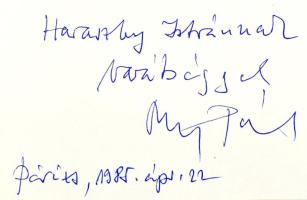 Haraszty Istvánnak
barátsággal
Pál
Párizs, 1985. ápr. 22